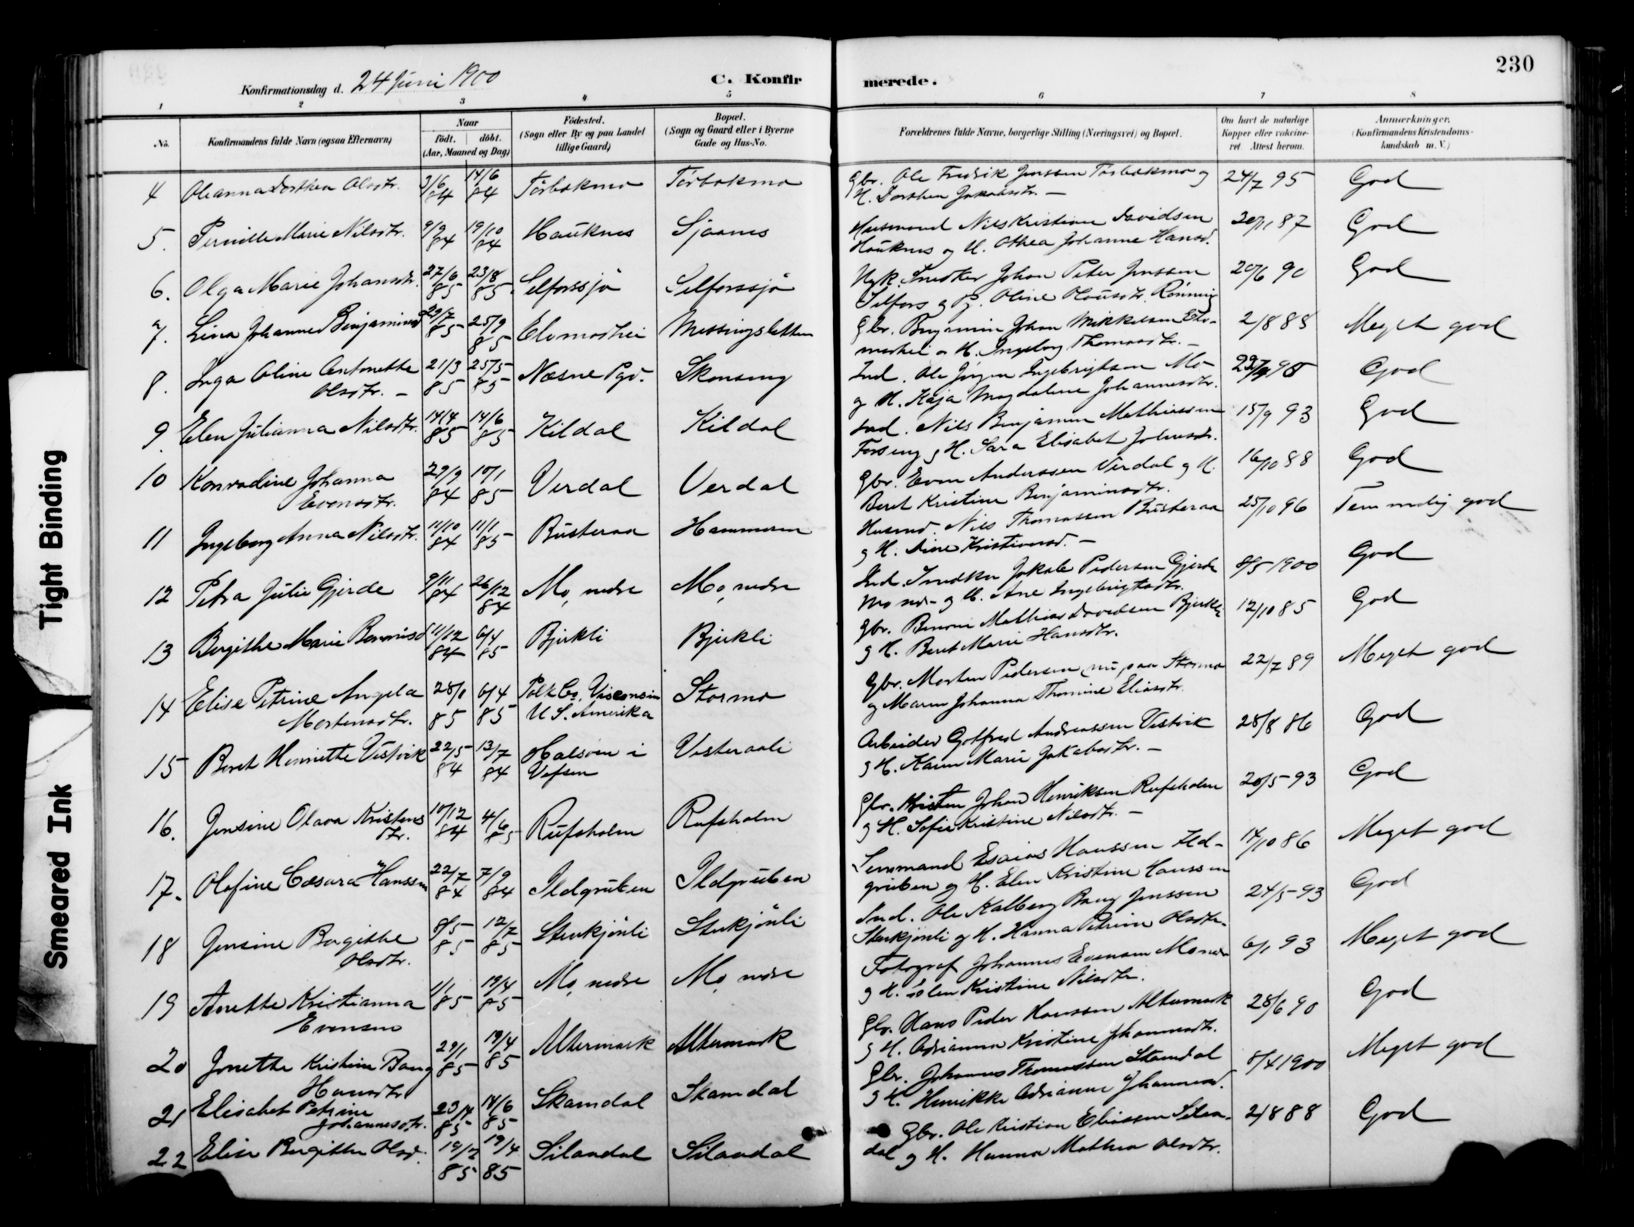 230
Konfirmationsdag d. 24 Juni 1900
C. Konfirmerede.
1 2 3 4 5 6 7 8
No.
Konfirmandens fulde Navn (ogsaa Efternavn)
Naar
født. døbt.
(Aar, Maaned og Dag)
Fødested.
(Sogn eller By og paa Landet
tillige Gaard)
Bopæl.
(Sogn og Gaard eller i Byerne
Gade og Hus-No.
Forældrenes fulde Navne, borgerlige Stilling (Næringsvei) og Bopæl.
Om havt de naturlige
Kopper eller vaccine-
ret. Attest herom.
Anmærkninger.
(Konfirmandens Kristendoms-
kundskab m. V.)
4 Oleanna Dorthea Olsdtr. 3/6 84 14/6 84 Forbakmo Forbakmo Gbr. Ole Fredrik Jenssen Forbakmo og 24/7 95 God
H. Dorthea Jakobsdtr. —
5. Pernille Marie Nilsdtr. 9/9 84 19/10 84 Hauknes Sjaanes Husmand Nils Kristian Davidsen 20/11 87 God
Hauknes og H. Othea Johanne Hansd.
6. Olga Marie Johansdtr. 27/6 85 23/8 85 Selforssjø Selforssjø Snedker Johan Peter Jenssen 20/6 90 God
Selfors og Oline Rønning
7. Lina Johanne Benjaminsd 29/7 85 25/9 85 Messingsletten Gbr. Benjamin Johan Mikkelsen 2/8 88 Meget god
H. Ingeborg Thomasdtr. —
8. Inga Oline Antonette 21/3 85 25/5 85 Næsne Pgd. Skonseng Ind. Ole Jørgen Ingebrigtsen Mo God
Olsdtr. — og H. Kaja Magdalene Johannesdtr.
9. Elen Julianna Nilsdtr. 14/4 85 14/6 85 Kildal Kildal Ind. Nils Benjamin Mathiassen 15/9 93 God
og H. Sara Elisabet
10 Konradine Johanna 29/9 84 10/1 85 Verdal Verdal Gbr. Even Anderssen Verdal og H. 16/10 88 God
Evensdtr. Beret Kristine Benjaminsdtr.
11 Ingeborg Anna Nilsdtr. 11/10 84 11/1 85 Busteraa Hammeren Husmd. Nils Thomassen Busteraa 25/10 96 Temmelig god
og H. Kristiansd. —
12 Petra Julie Gjerde 9/11 84 26/12 84 Mo, nedre Mo, nedre Ind. Snedker Jakob Pedersen Gjerde 8/5 1900 God
Mo og H. Ane Ingebrigtsdtr.
13 Bergithe Marie Benonisd 11/12 84 6/4 85 Bjerkli Bjerkli Gbr. Benoni Mathias Davidsen Bjerkli 12/10 85 God
og H. Beret Marie Hansdtr.
14 Elise Petrine Angela 28/1 85 6/4 85 Polk Co. Visconsin Stormo Gbr. Morten Pedersen (nu) paa Stormo 22/7 89 Meget god
Mortensdtr. U S. Amerika og Maren Johanna Thomine Eliasdtr.
15 Beret Henriette Vistvik 22/5 84 13/7 84 Halsøen i Vesteraali Arbeider Gotfred Andreassen Vistvik 28/8 86 God
Vefsen og H. Karen Marie Jakobsdtr. —
16. Jensine Olava Kristens 10/12 84 4/6 85 Rufsholm Rufsholm Gbr. Kristen Johan Henriksen Rufsholm 20/5-93 God
dtr. og H. Sofie Kristine Nilsdtr. —
17. Olefine Cæsara Hanssen 22/7 84 7/9 84 Ildgruben Ildgruben Lensmand Esaias Hanssen Ild- 14/10 86 Meget god
gruben og H. Elen Kristine Hanssen
18 Jensine Bergithe 9/5 85 12/7 85 Storkjønli Storkjønli Ind. Ole Kalberg Bang Jenssen 24/5-93 God
Olsdtr. Storkjønli og H. Hanna Petrine Olsdtr.
19 Anette Kristianna 1/1 85 19/4 85 Mo, nedre Mo, nedre Fotograf Johannes Evensen Mo 6/1 93 Meget god
Evensen og H. Kristine Nilsdtr.
20 Jonetta Kristine Bang 29/1 85 19/4 85 Altermark Altermark Gbr. Hans Peder Hanssen Altermark 28/6 90 God
Hansdtr og H. Adrianna Kristine Johannesdtr.
21 Elisabet Petrine 23/4 85 14/6 85 Skamdal Skamdal Gbr. Johannes Thomassen Skamdal 8/4 1900 Meget god
Johannesdtr. og H. Henrikke Adrianne Johannesd.
22 Elise Bergitte Olsd. 19/2 85 19/4 85 Silandal Silandal Gbr. Ole Kristian Eliassen Silan- 2/8 88 God
dal og H. Hanna Mathea Olsdtr.
Tight Binding
Smeared Ink